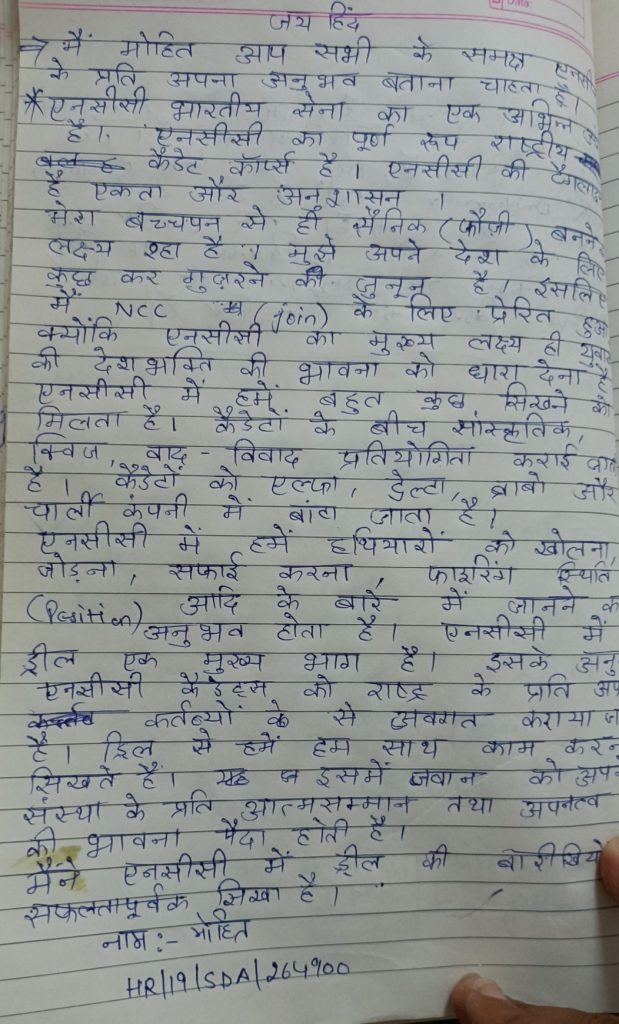 जय हिंद
⇒ मैं मोहित आप सभी के समक्ष एनसीसी
के प्रति अपना अनुभव बताना चाहता हूँ।
* एनसीसी भारतीय सेना का एक अभिन्न
है। एनसीसी का पूर्ण रूप राष्ट्रीय
कैडेट कॉर्प्स है। एनसीसी की टैगलाइन
है एकता और अनुशासन।
मेरा बच्चपन से ही सैनिक (फौजी) बनने
लक्ष्य रहा है। मुझे अपने देश के लिए
कुछ कर गुज़रने की जुनून है। इसलिए
मैं NCC (join) के लिए प्रेरित हुआ
क्योंकि एनसीसी का मुख्य लक्ष्य ही युवाओं
की देशभक्ति की भावना को धारा देना है
एनसीसी में हमें बहुत कुछ सिखने को
मिलता है। कैडेटों के बीच सांस्कृतिक,
क्विज, वाद-विवाद प्रतियोगिता कराई जाती
है। कैडेटों को एल्फा, डेल्टा, ब्राबो और
चार्ली कंपनी में बांटा जाता है।
एनसीसी में हमें हथियारों को खोलना,
जोड़ना, सफाई करना, फाइरिंग स्थिति
(Position) आदि के बारे में जानने का
अनुभव होता है। एनसीसी में
ड्रील एक मुख्य भाग है। इसके
एनसीसी कैडेट्स को राष्ट्र के प्रति
कर्तव्यों के से अवगत कराया जाता
है। ड्रिल से हमें हम साथ काम करना
सिखते हैं। इसमें जवान को अपने
संस्था के प्रति आत्मसम्मान तथा अपनत्व
की भावना पैदा होती है।
मैंने एनसीसी में ड्रील की बारीखियों
सफलतापूर्वक सिखा है।
नाम :- मोहित
HR/19/SDA/264900